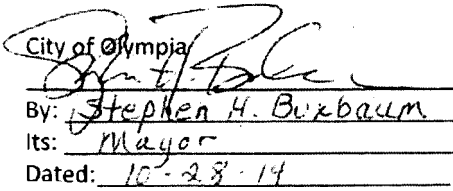 City of Olympia
By: Stephen H. Buxbaum
Its: Mayor
Dated: 10-28-14